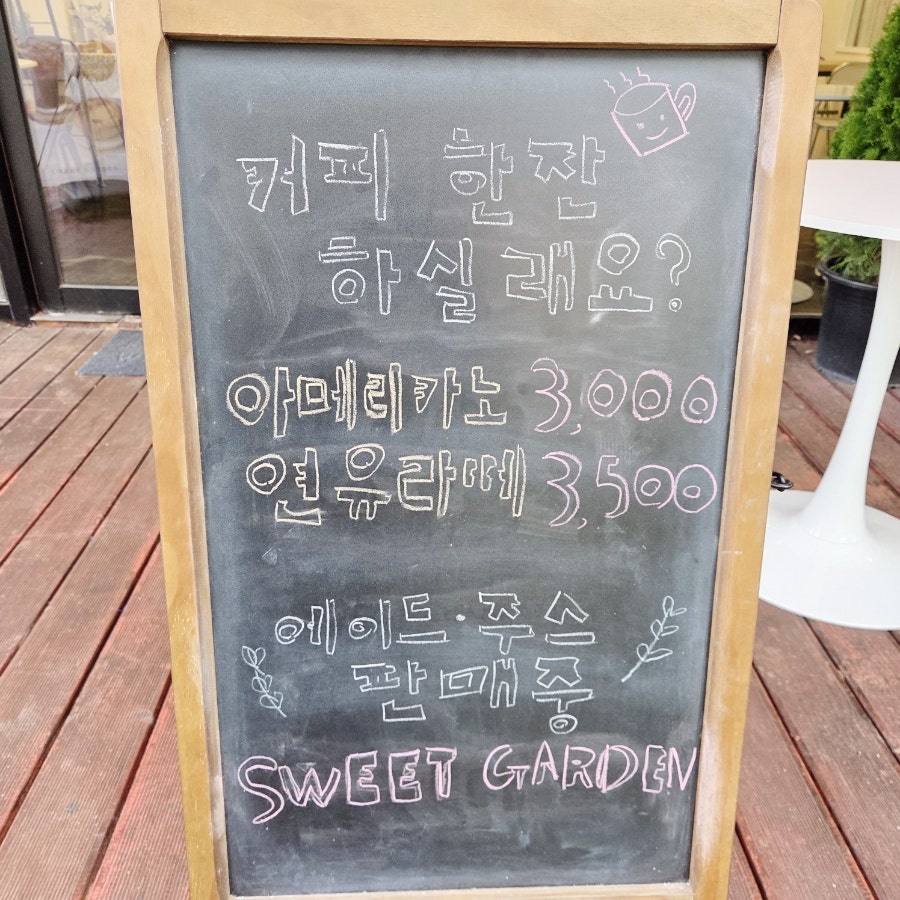 커피 한잔
하실래요?
아메리카노 3,000
연유라떼 3,500
에이드·쥬스
판매중
SWEET GARDEN